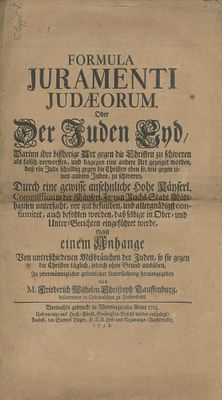 FORMULA
JURAMENTI
JUDÆORUM,
Oder
Der Juden Eyd,
Darinn ihre bißherige Art gegen die Christen zu schweren
als falsch verworffen, und dagegen eine andere Art gezeiget worden,
daß ein Jude schuldig gegen die Christen eben so, wie gegen ei-
nen andern Juden, zu schweren,
Durch eine gewisse ansehnliche Hohe Käyserl.
Commission in der Käyserl. Freyen Reichs-Stadt Mühl-
hausen untersucht, vor gut befunden, und allergnädigst con-
firmiret, auch befohlen worden, daß selbige in Ober- und
Unter-Gerichten eingeführet werde,
Nebst
einem Anhange
Von unterschiedenen Mißbräuchen der Juden, so sie gegen
die Christen täglich, jedoch ohne Grund ausüben,
Zu jedermänniglicher gründlicher Unterrichtung herausgegeben
von
M. Friederich Wilhelm Christoph Dauffenburg,
in Halberstadt.
Vormahls gedruckt in Wernigerode Anno 1723.
und wieder aufgelegt:
1738.